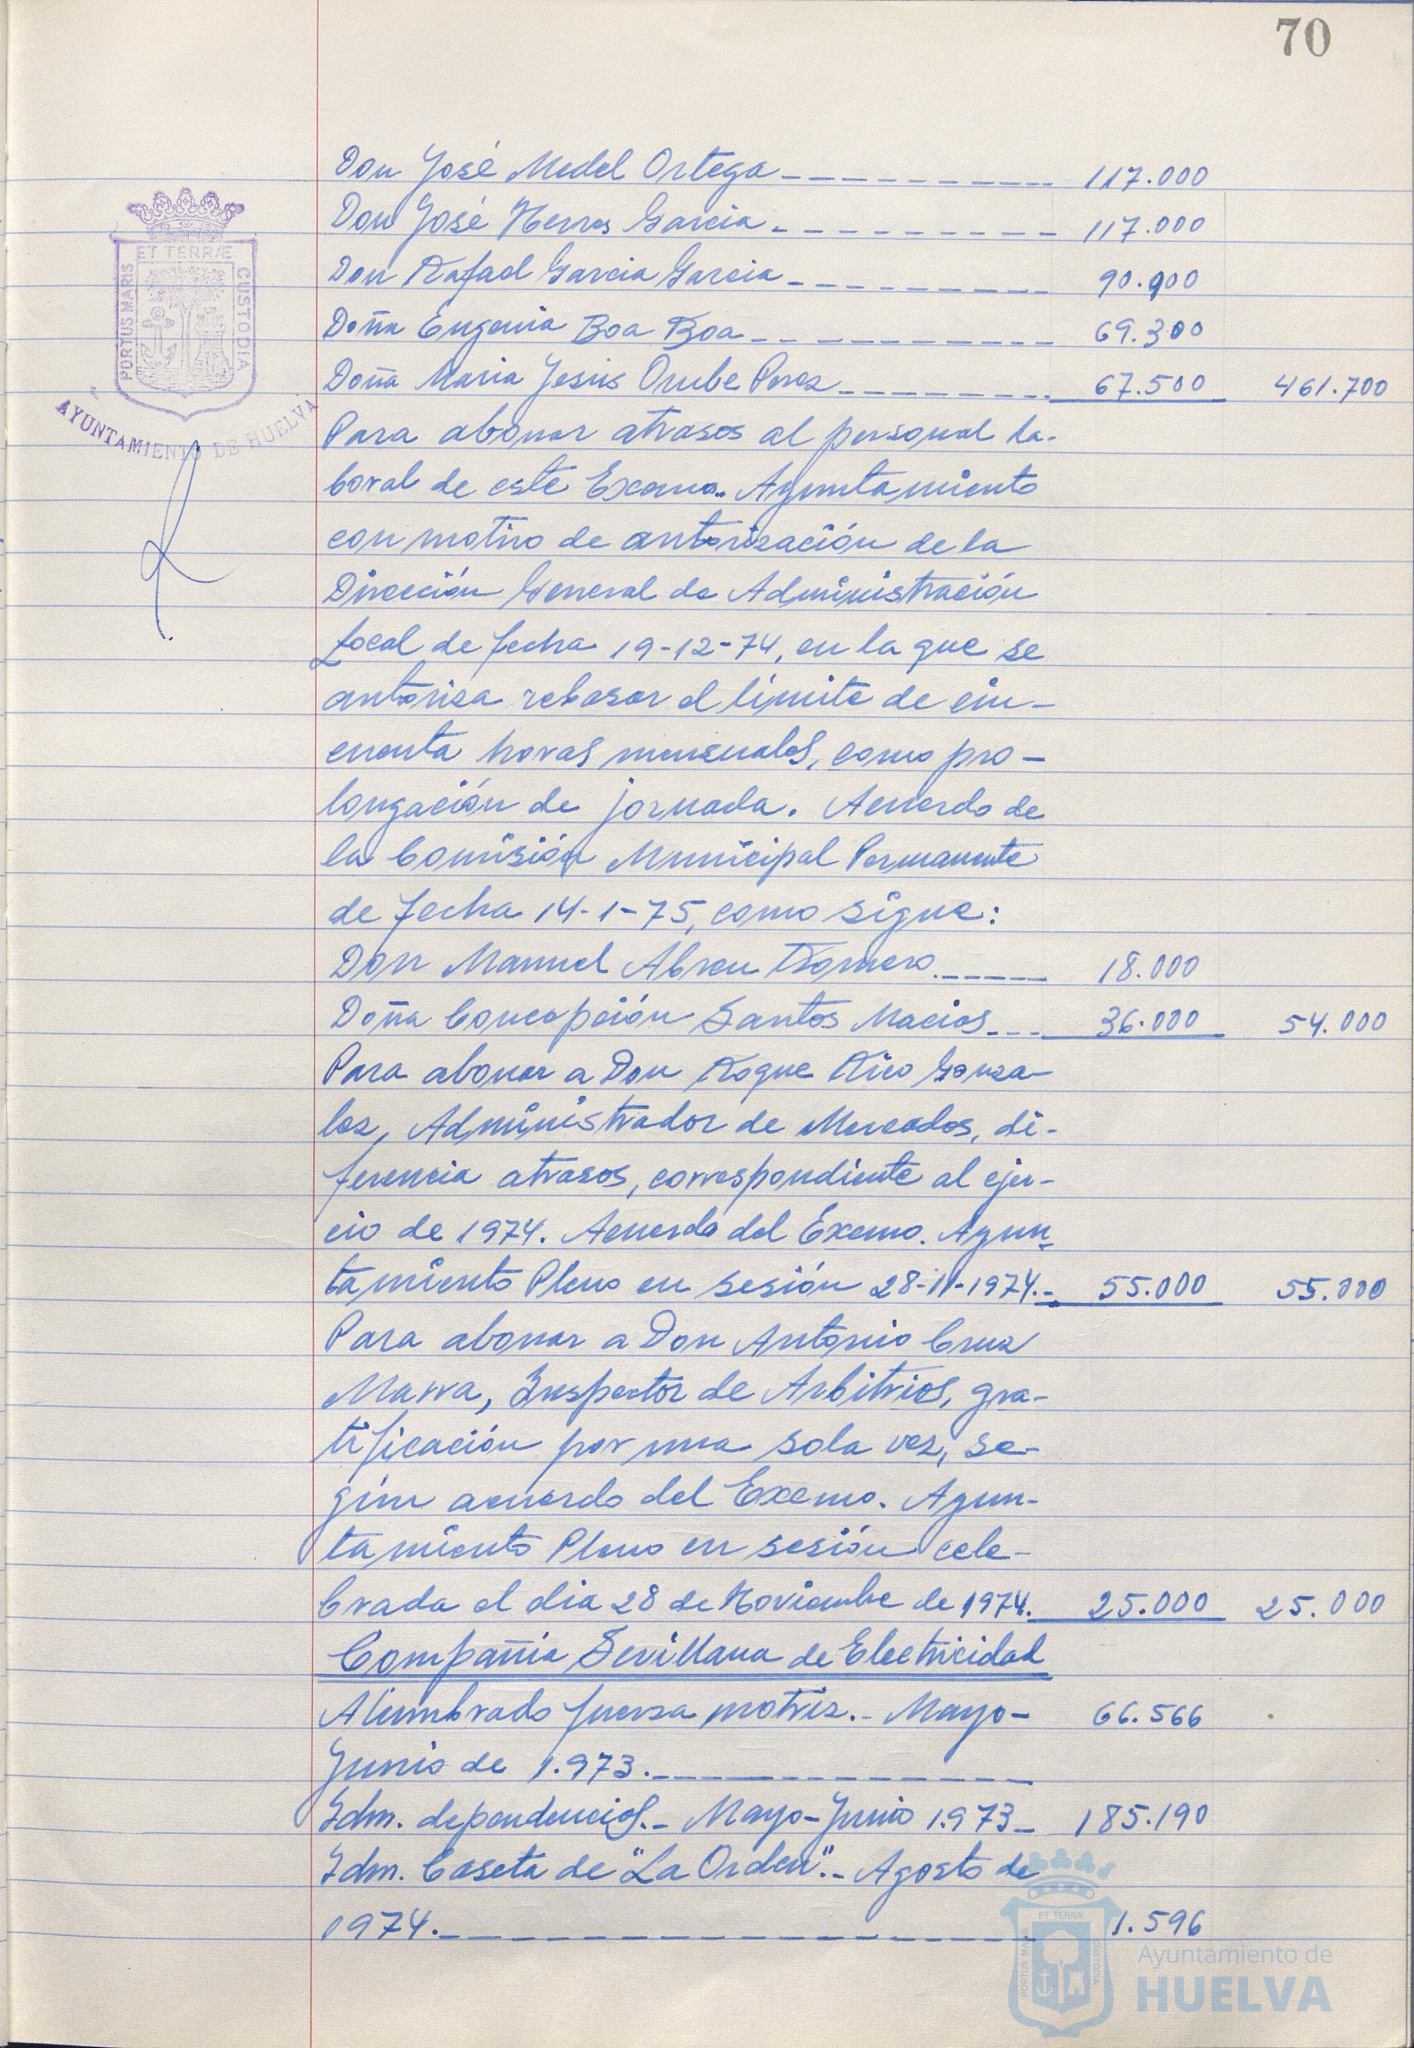 70
Don José Medel Ortega 117.000
Don José Herros Garcia 117.000
Don Rafael Garcia Garcia 90.900
Doña Eugenia Boa Boa 69.300
Doña Maria Jesús Orube Perez 67.500 461.700
Para abonar atrasos al personal la-
boral de este Excmo. Ayuntamiento
con motivo de autorización de la
Dirección General de Administración
Local de fecha 19-12-74, en la que se
autoriza rebasar el límite de cin-
cuenta horas mensuales, como pro-
longación de jornada. Acuerdo de
la Comisión Municipal Permanente
de fecha 14-1-75, como sigue:
Don Manuel Abreu Romero 18.000
Doña Concepción Santos Macias 36.000 54.000
Para abonar a Don Roque Rico Gonza-
lez, Administrador de Mercados, di-
ferencia atrasos, correspondiente al ejer-
cio de 1974. Acuerdo del Excmo. Ayun-
tamiento Pleno en sesión 28-11-1974.- 55.000 55.000
Para abonar a Don Antonio Cruz
Marra, Inspector de Arbitrios, gra-
tificación por una sola vez, se-
gún acuerdo del Excmo. Ayun-
tamiento Pleno en sesión cele-
brada el dia 28 de Noviembre de 1974. 25.000 25.000
Compañia Sevillana de Electricidad
Alumbrado fuerza motriz.- Mayo- 66.566
Junio de 1.973.
Idm. dependencias.- Mayo-Junio 1.973 185.190
Idm. Caseta de "La Orden".- Agosto de
1974. 1.596
PORTUS MARIS ET TERRÆ CUSTODIA
AYUNTAMIENTO DE HUELVA
PORTUS MARIS ET TERRÆ CUSTODIA
Ayuntamiento de
HUELVA